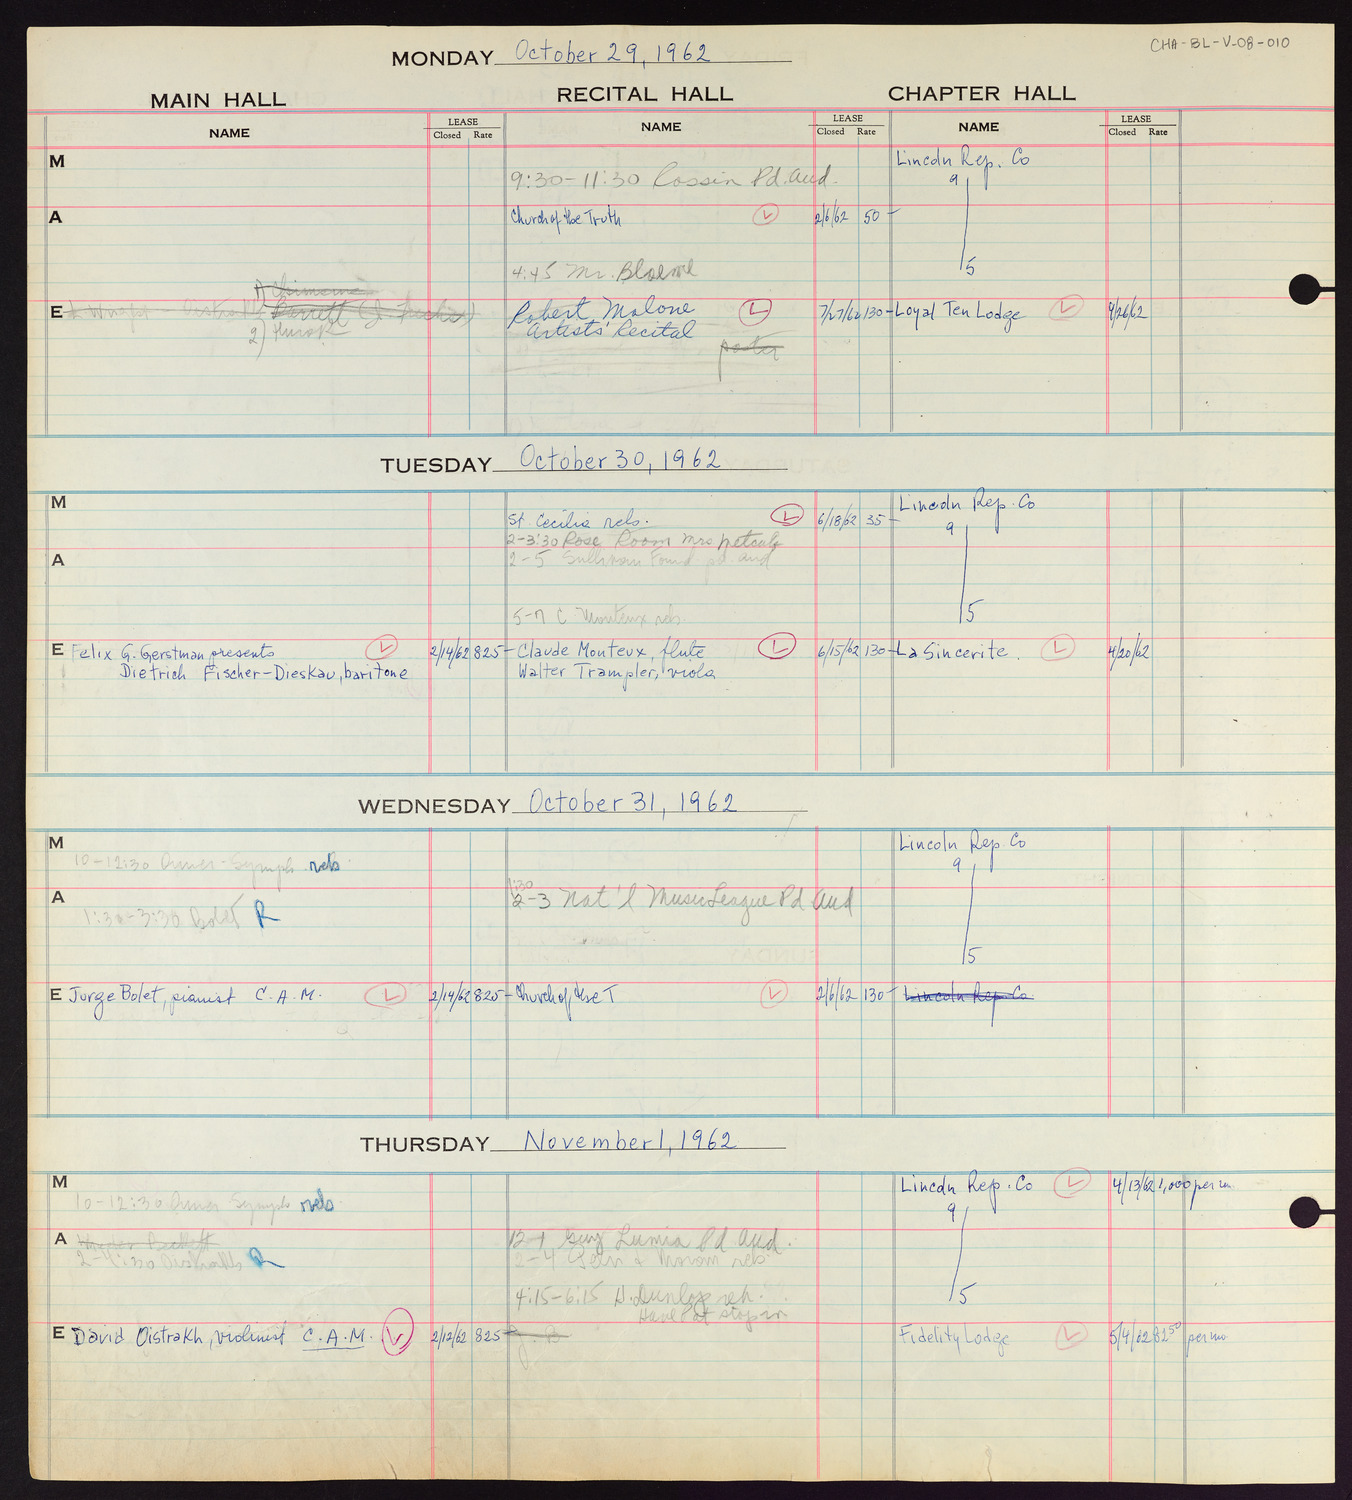 CHA-BL-V-08-010
MONDAY October 29, 1962
MAIN HALL RECITAL HALL CHAPTER HALL
NAME LEASE Closed Rate NAME LEASE Closed Rate NAME LEASE Closed Rate
M Lincoln Rep. Co
9:30-11:30 Rossin Pd. Aud.
9
A Church of the Truth L 2/6/62 50-
4:45 Mr.
5
E Robert Malone L 7/27/62 130- Loyal Ten Lodge L 4/26/62
Artists' Recital
2)
poster
TUESDAY October 30, 1962
M Lincoln Rep. Co
St. Cecilia rehs. L 6/18/62 35-
9
2-3:30 Rose Room Mrs Metcalf
A 2-5 Sullivan Found pd aud
5-7 C Monteux reh
5
E Felix G. Gerstman presents L 2/14/62 825- Claude Monteux, flute L 6/15/62 130- La Sincerite. L 4/20/62
Dietrich Fischer-Dieskau, baritone Walter Trampler, viola
WEDNESDAY October 31, 1962
M Lincoln Rep. Co
10-12:30 Amer-Symph rehs
9
1:30
A 2-3 Nat'l Music League Pd Aud
1:30-3:30 Bolet R
5
E Jorge Bolet, pianist C.A.M. L 2/14/62 825- Church of the T L 2/6/62 130- Lincoln Rep Co
THURSDAY November 1, 1962
M Lincoln Rep. Co L 4/13/62 1,000 per mo
10-12:30 Amer Symph rehs
9
A 12-1 Guy Lumia Pd Aud.
2-4:30 Oistrakh R 2-4
4:15-6:15 D. Dunlop reh.
5
Have Pat stop in
E David Oistrakh, violinist C.A.M. L 2/12/62 825- Fidelity Lodge L 5/4/62 82 50 per mo